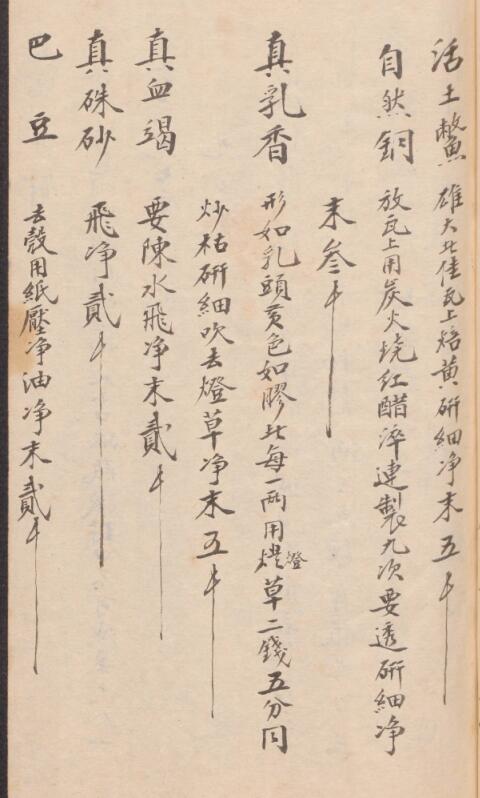 活土鱉 雄大者佳瓦上焙黃研細净末五钅
自然銅 放瓦上用炭火燒紅醋淬連製九次要透研細净
末叁钅
真乳香 形如乳頭黃色如膠者每一兩用燈草二錢五分同
炒枯研細吹去燈草净末五钅
真血竭 要陳水飛净末貳钅
真硃砂 飛净貳钅
巴豆 去殼用紙壓净油净末貳钅